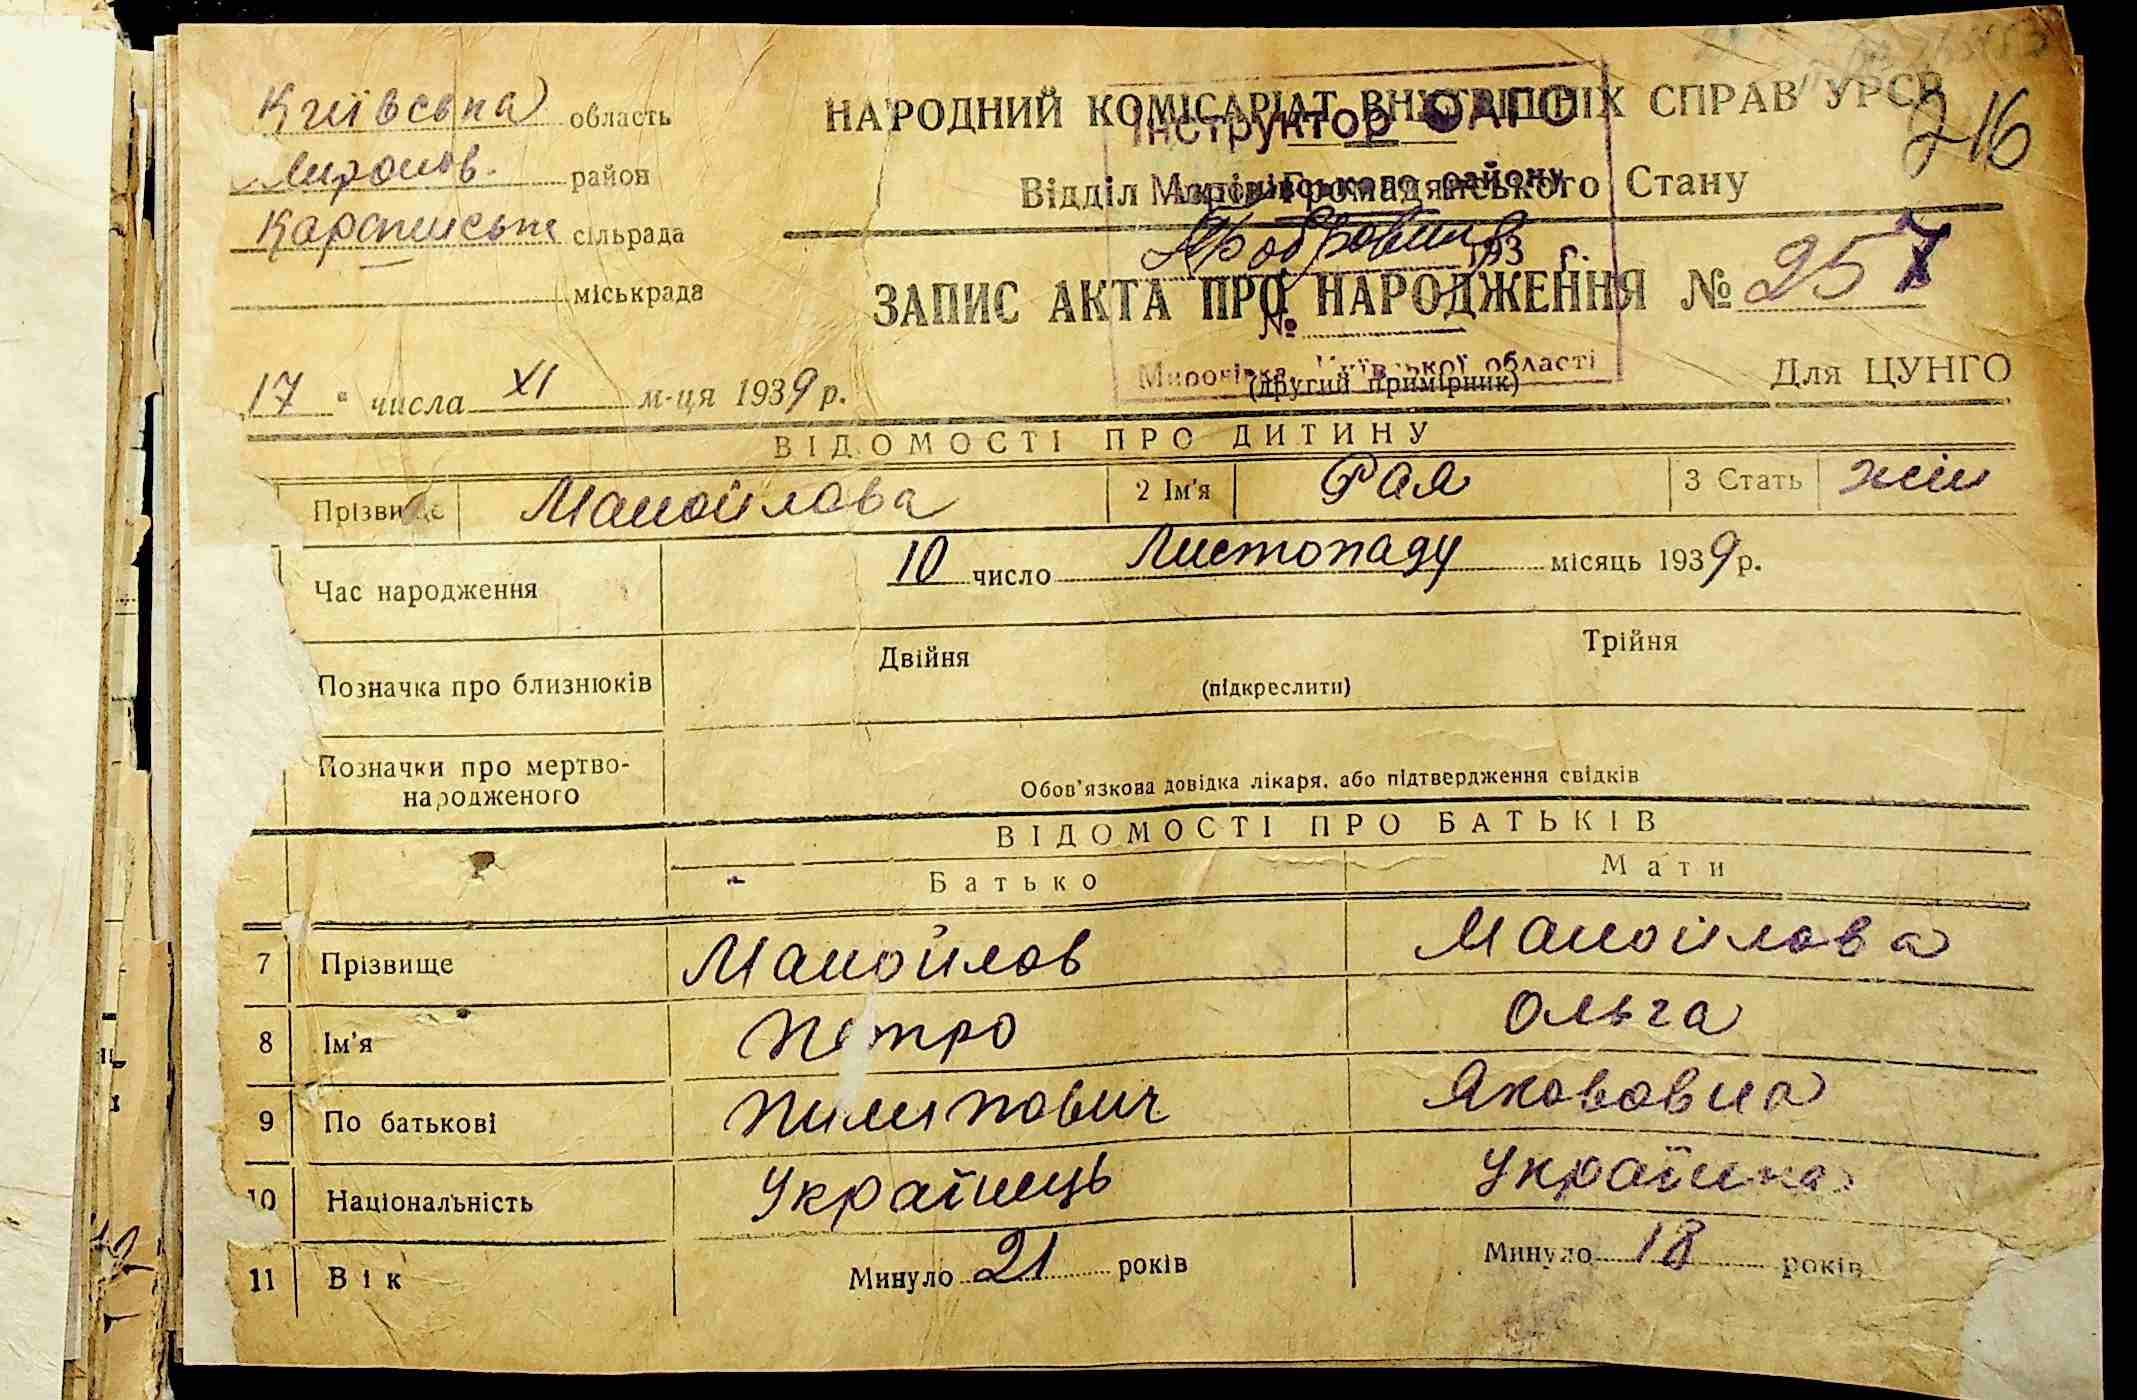 Київська область
Миронов. район
Карапиське сільрада
міськрада
НАРОДНИЙ КОМІСАРІАТ ВНУТРІШНІХ СПРАВ УРСР
216
Відділ Актів Громадянського Стану
Інструктор ОАГС
Миронівського району
193 г.
№
Миронівка, Київської області
ЗАПИС АКТА ПРО НАРОДЖЕННЯ № 257
(другий примірник)
Для ЦУНГО
17 " числа XI м-ця 1939 р.
ВІДОМОСТІ ПРО ДИТИНУ
Прізвище Манойлова 2 Ім'я Рая 3 Стать жін
Час народження 10 число Листопаду місяць 1939 р.
Позначка про близнюків Двійня (підкреслити) Трійня
Позначки про мертво-
народженого Обов'язкова довідка лікаря, або підтвердження свідків
ВІДОМОСТІ ПРО БАТЬКІВ
Батько Мати
7 Прізвище Манойлов Манойлова
8 Ім'я Петро Ольга
9 По батькові Пилипович Якововна
10 Національність Українець Українка
11 Вік Минуло 21 років Минуло 18 років